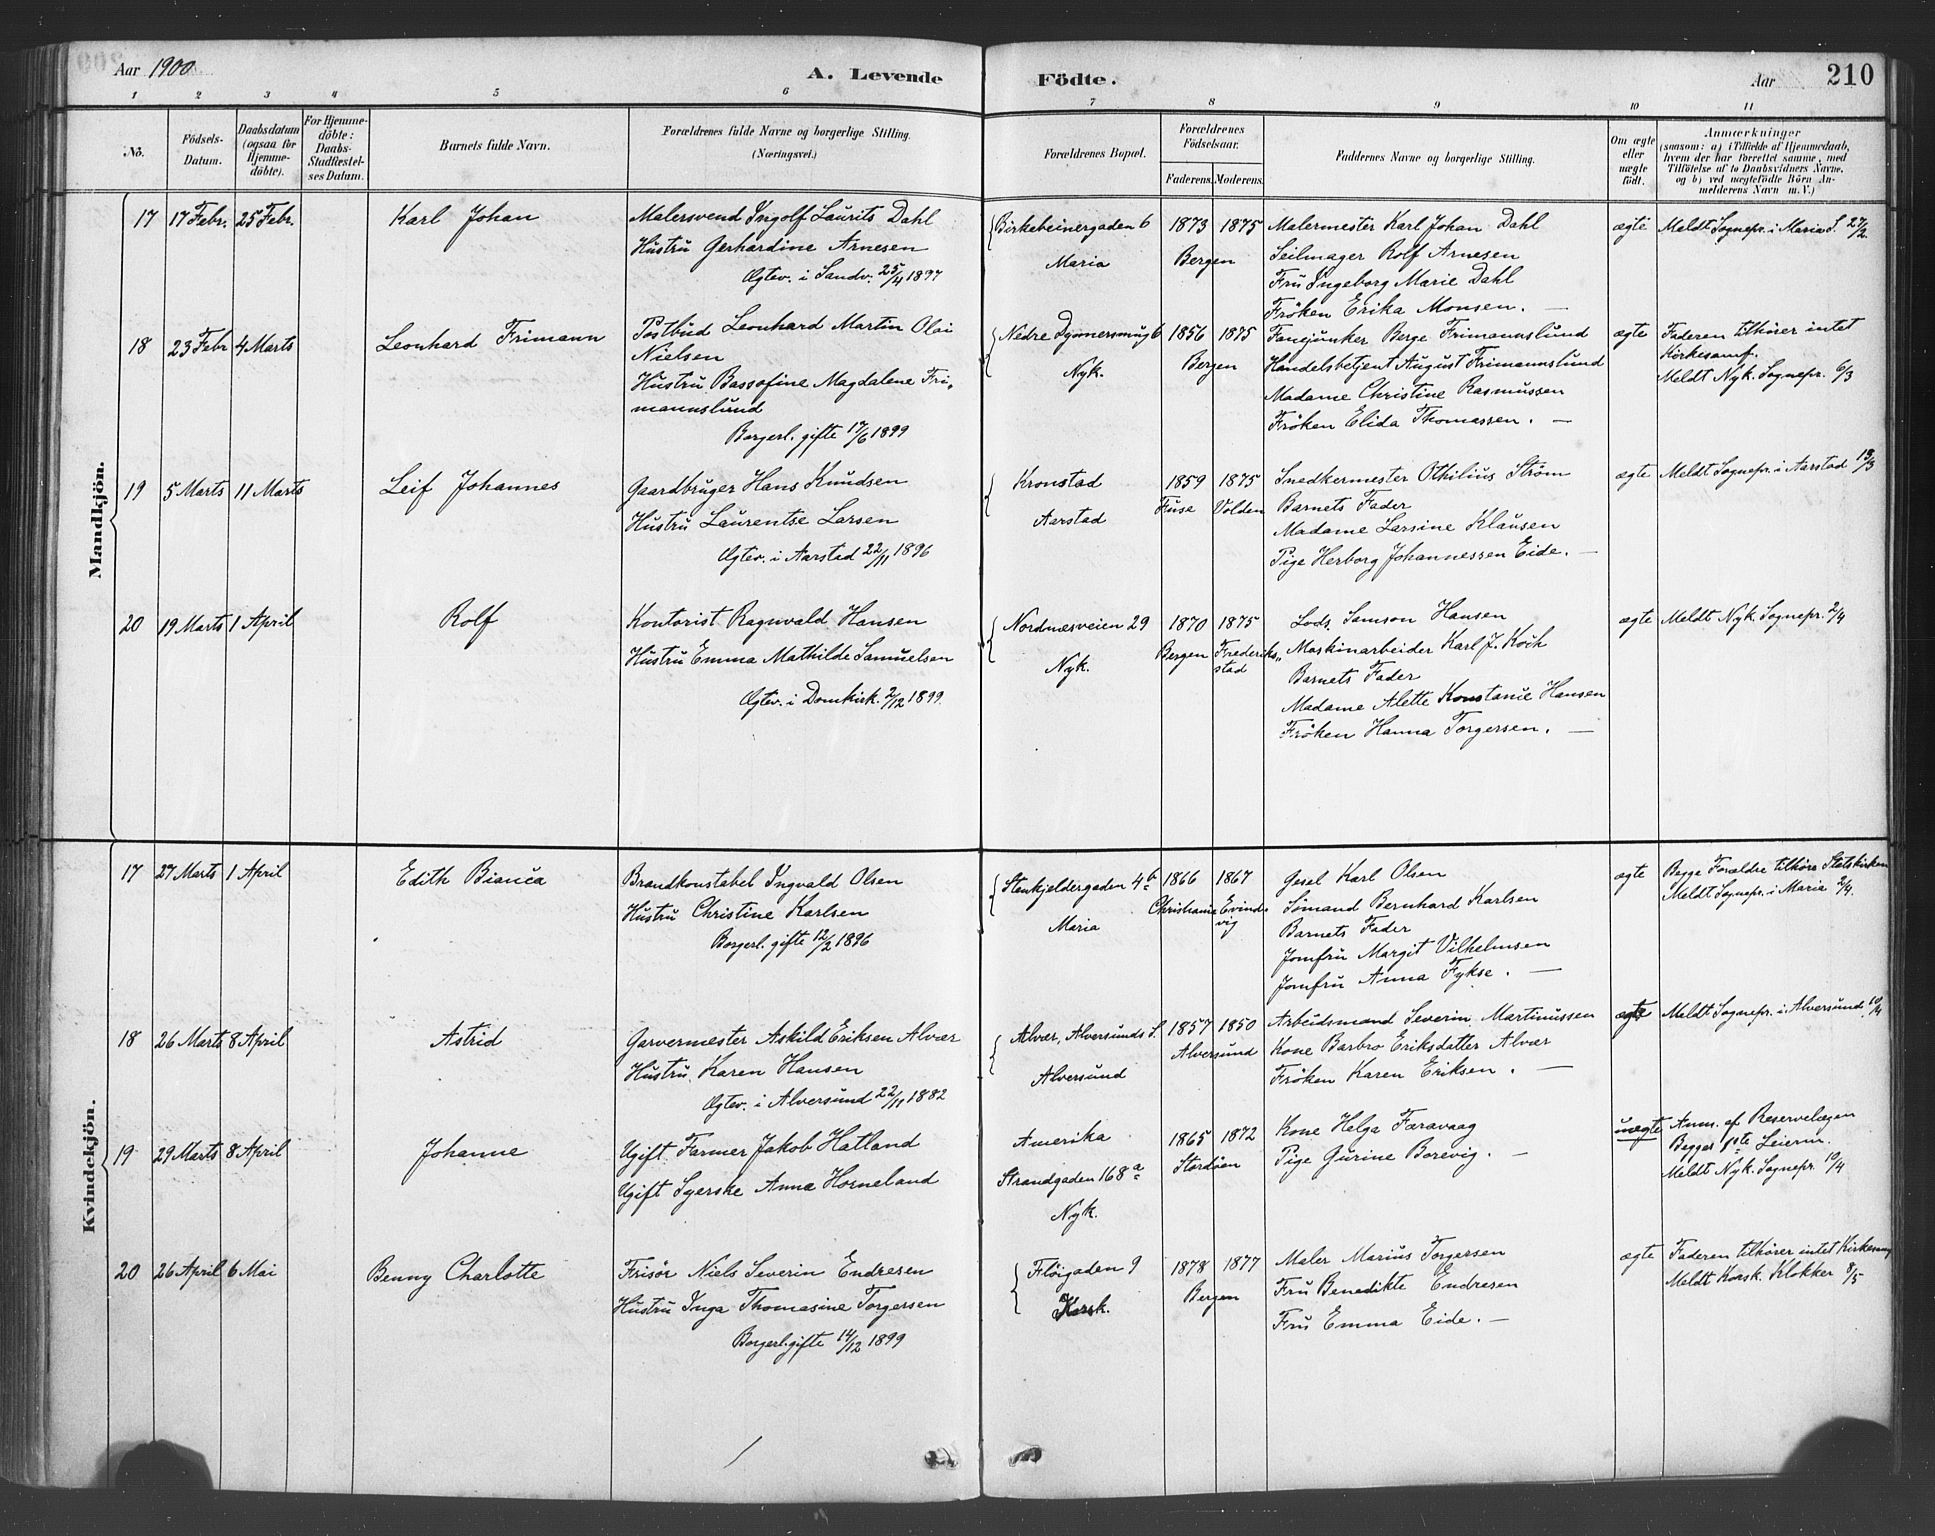 Aar 1900
A. Levende
Födte.
Aar
210
1 2 3 4 5 6 7 8 9 10 11
No.
Födsels-
Datum.
Daabsdatum
(ogsaa for
Hjemme-
döbte).
For Hjemme-
döbte:
Daabs-
Stadfæstel-
ses Datum.
Barnets fulde Navn.
Forældrenes fulde Navne og borgerlige Stilling.
(Næringsvei.)
Forældrenes Bopæl.
Forældrenes
Födselsaar.
Faderens. Moderens.
Faddernes Navne og borgerlige Stilling.
Om ægte
eller
uægte
födt.
Anmærkninger
(saasom: a) i Tilfælde af Hjemmedaab,
hvem der har forrettet samme, med
Tilföielse af to Daabsvidners Navne,
og b) ved uægtefödte Börn An-
melderens Navn m. V.)
Mandkjön.
17 17 Febr. 25 Febr.
Karl Johan
Malersvend Ingolf Laurits Dahl
Hustru Gerhardine Arnesen
Ægtev. i Sandv. 25/4 1897
Birkebeinergaden 6
Maria
1873 1875
Bergen
Malermester Karl Johan Dahl
Seilmager Rolf Arnesen
Fru Ingeborg Marie Dahl
Fröken Erika Monsen. —
ægte
Meldt Sognepr. i Maria S. 27/2.
18 23 Febr 4 Marts
Leonhard Frimann
Postbud Leonhard Martin Olai
Nielsen
Hustru Bassofine Magdalene Fri-
mannslund
Borgerl. gifte 17/6 1899
Nedre Dynnersmug 6
Nyk.
1856 1875
Bergen
Fanejunker Berge Frimannslund
Handelsbetjent August Frimannslund
Madame Christine Rasmussen
Fröken Elida Thomassen. —
ægte
Faderen tilhører intet
Kirkesamf.
Meldt Nyk. Sognepr. 6/3
19 5 Marts 11 Marts
Leif Johannes
Gaardbruger Hans Knudsen
Hustru Laurentse Larsen
Ægtev. i Aarstad 22/11 1896
Kronstad
Aarstad
1859 1875
Fuse Volden
Snedkermester Othilius Ström
Barnets Fader
Madame Larsine Klausen
Pige Herborg Johannessen Eide. —
ægte
Meldt Sognepr. i Aarstad 13/3
20 19 Marts 1 April
Rolf
Kontorist Ragnvald Hansen
Hustru Emma Mathilde Samuelsen
Ægtev. i Domkirk. 2/12 1899.
Nordnæsveien 29
Nyk.
1870 1875
Bergen Frederiks-
stad
Lods. Samson Hansen
Maskinarbeider Karl J. Koch
Barnets Fader
Madame Alette Konstanse Hansen
Fröken Hanna Torgersen. —
ægte
Meldt Nyk. Sognepr. 2/4
Kvindekjön.
17 27 Marts 1 April
Edith Bianca
Brandkonstabel Ingvald Olsen
Hustru Christine Karlsen
Borgerl. gifte 12/2 1896
Stenkjeldergaden 4 b
Maria
1866 1867
Christiania Evind-
vig
Gesel Karl Olsen
Sömand Bernhard Karlsen
Barnets Fader
Jomfru Margit Vilhelmsen
Jomfru Anna Fykse. —
ægte
Begge Forældre tilhøre Statskirken
Meldt Sognepr. i Maria 2/4.
18 26 Marts 8 April
Astrid
Garvermester Askild Eriksen Alvær
Hustru Karen Hansen
Ægtev. i Alversund 22/11 1882
Alvær, Alversunds S.
Alversund
1857 1850
Alversund
Arbeidsmand Severin Martinussen
Kone Barbro Eriksdatter Alvær
Fröken Karen Eriksen. —
ægte
Meldt Sognepr. i Alversund. 10/4
19 29 Marts 8 April
Johanne
Ugift Farmer Jakob Hatland
Ugift Syerske Anna Horneland
Amerika
Strandgaden 168 a
Nyk.
1865 1872
Stordöen
Kone Helga Færavaag
Pige Gurine Borevig. —
uægte
Anm. af Reservelægen
Begges 1ste Leierm.
Meldt Nyk. Sognepr. 10/4
20 26 April 6 Mai
Benny Charlotte
Frisör Niels Severin Endresen
Hustru Inga Thomasine Torgersen
Borgerl. gifte 14/12 1899
Flöigaden 9
Korsk.
1878 1877
Bergen
Maler Marius Torgersen
Fru Benedikte Endresen
Fru Emma Eide. —
ægte
Faderen tilhører intet Kirkesamf
Meldt Korsk. Klokker 8/5